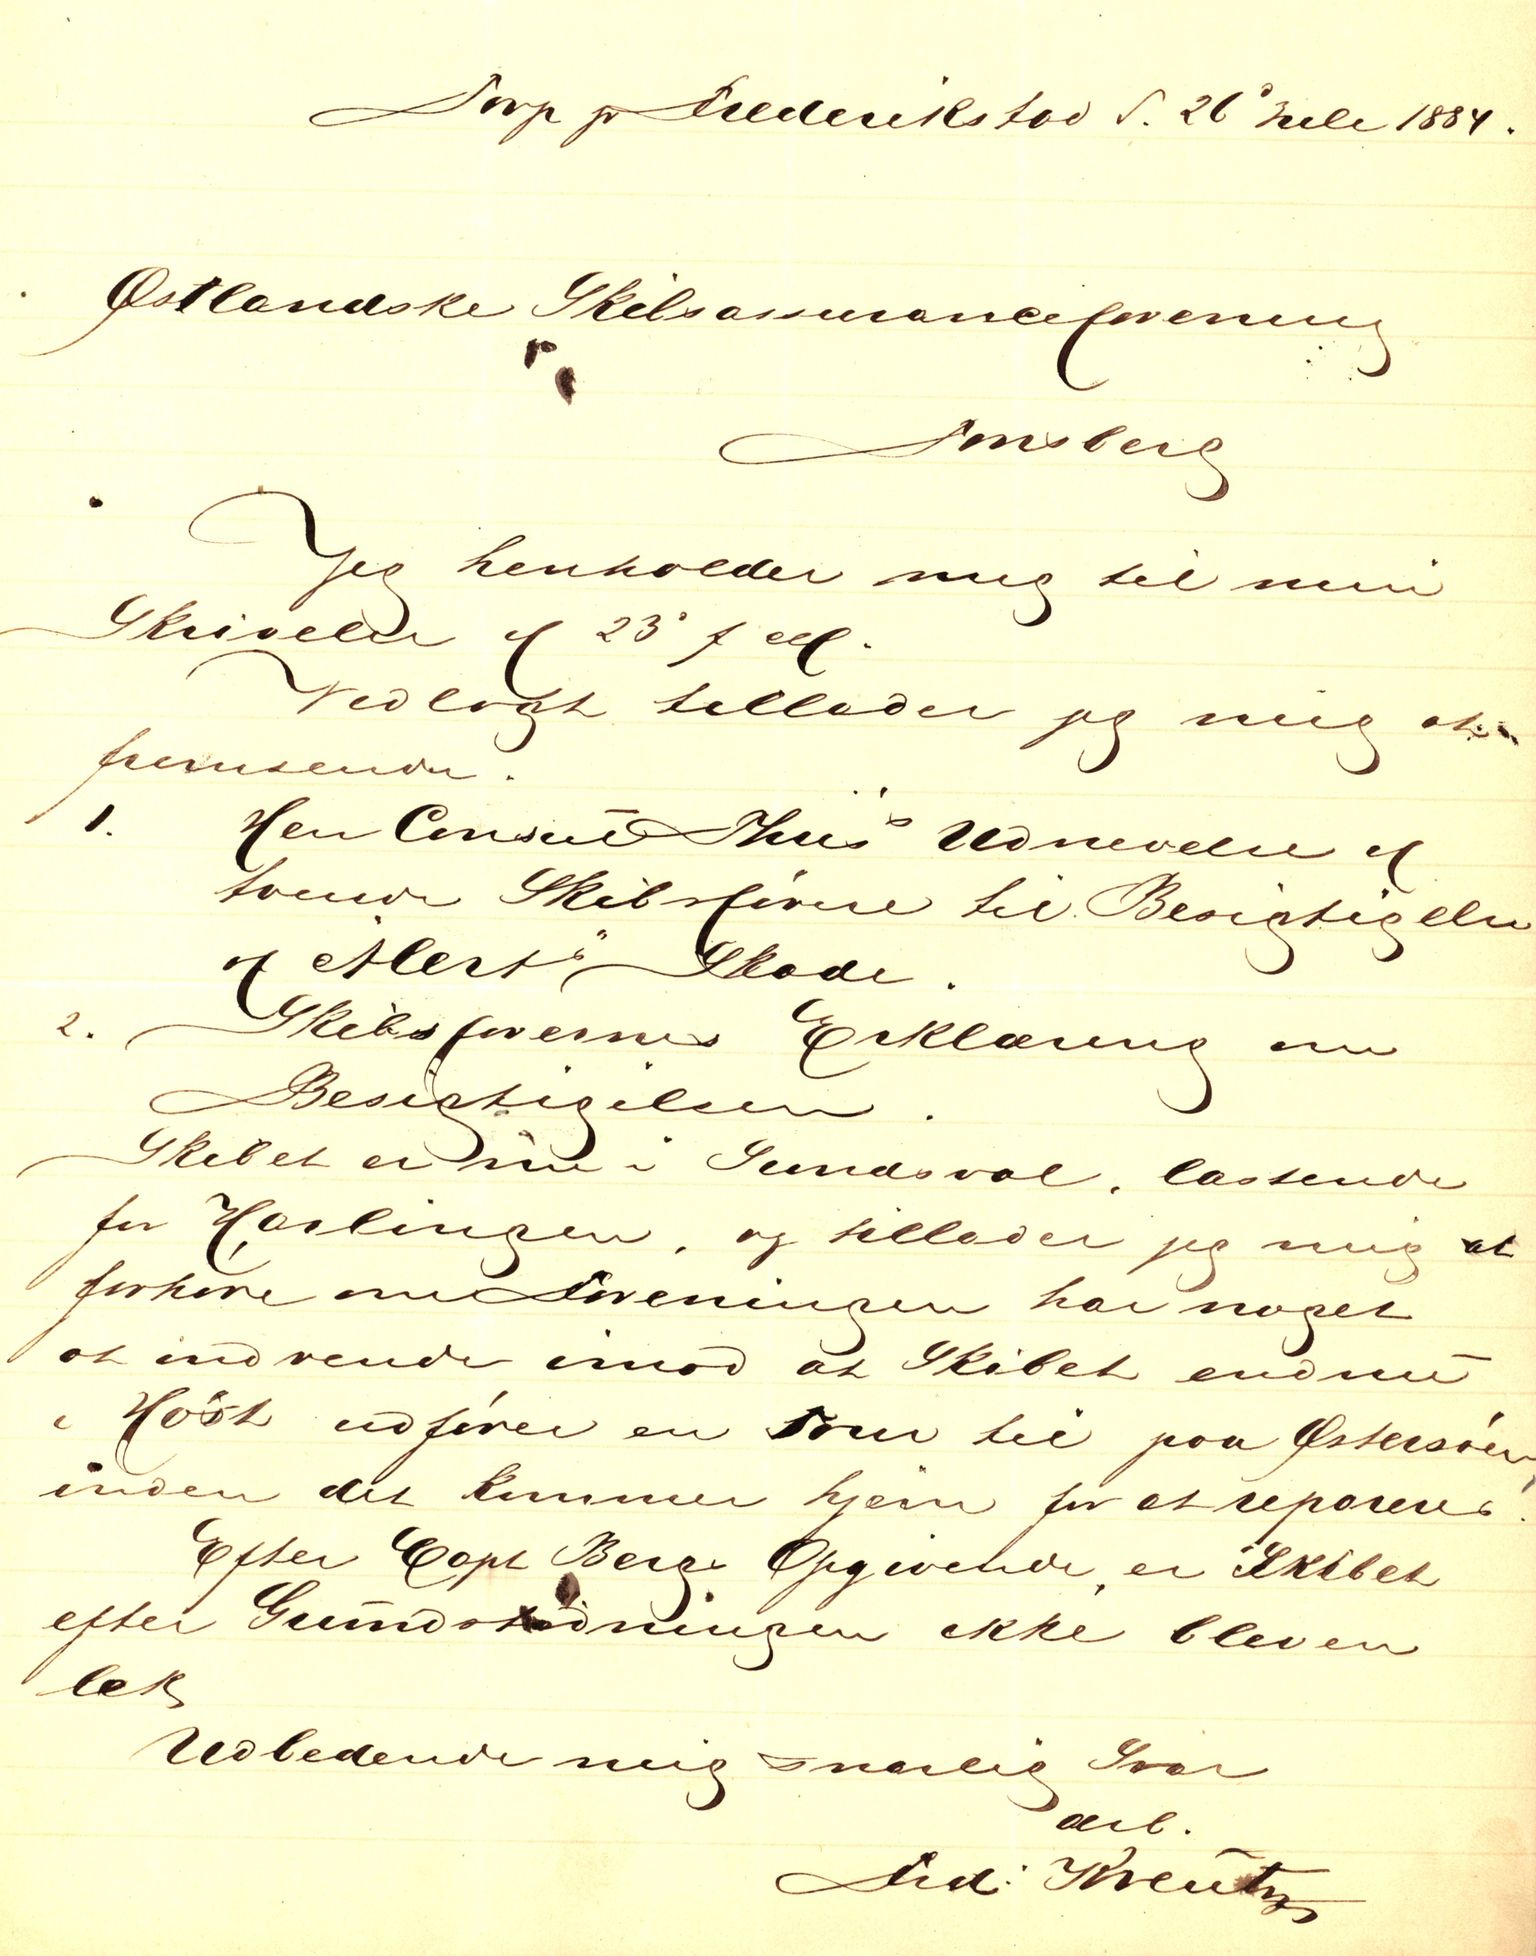 Torp pr Frederikstad d. 26' Juli 1884.
Østlandske Skibsassuranceforening
Tønsberg
Jeg henholder mig til min
Skrivelse af 23'
Vedlagt tillader jeg mig at
fremsende.
1. Herr Consul Thiis's Udnevelse af
tvende Skibsførere til Besigtigelse
af "Alert's" Skade.
2. Skibsførernes Erklæring om
Besigtigelsen.
Skibet er nu i Sundsval, lastende
for Harlingen, og tillader jeg mig at
forhøre om Foreningen har noget
at indvende imod at Skibet endnu
i Høst udfører en Tour til paa Østersøen,
inden det kommer hjem for at repareres.
Efter Capt Bergs Opgivende, er Skibet
efter Grundstødningen ikke bleven
læk
Udbedende mig snarlig Svar
ærb.
Fred: Kreutz